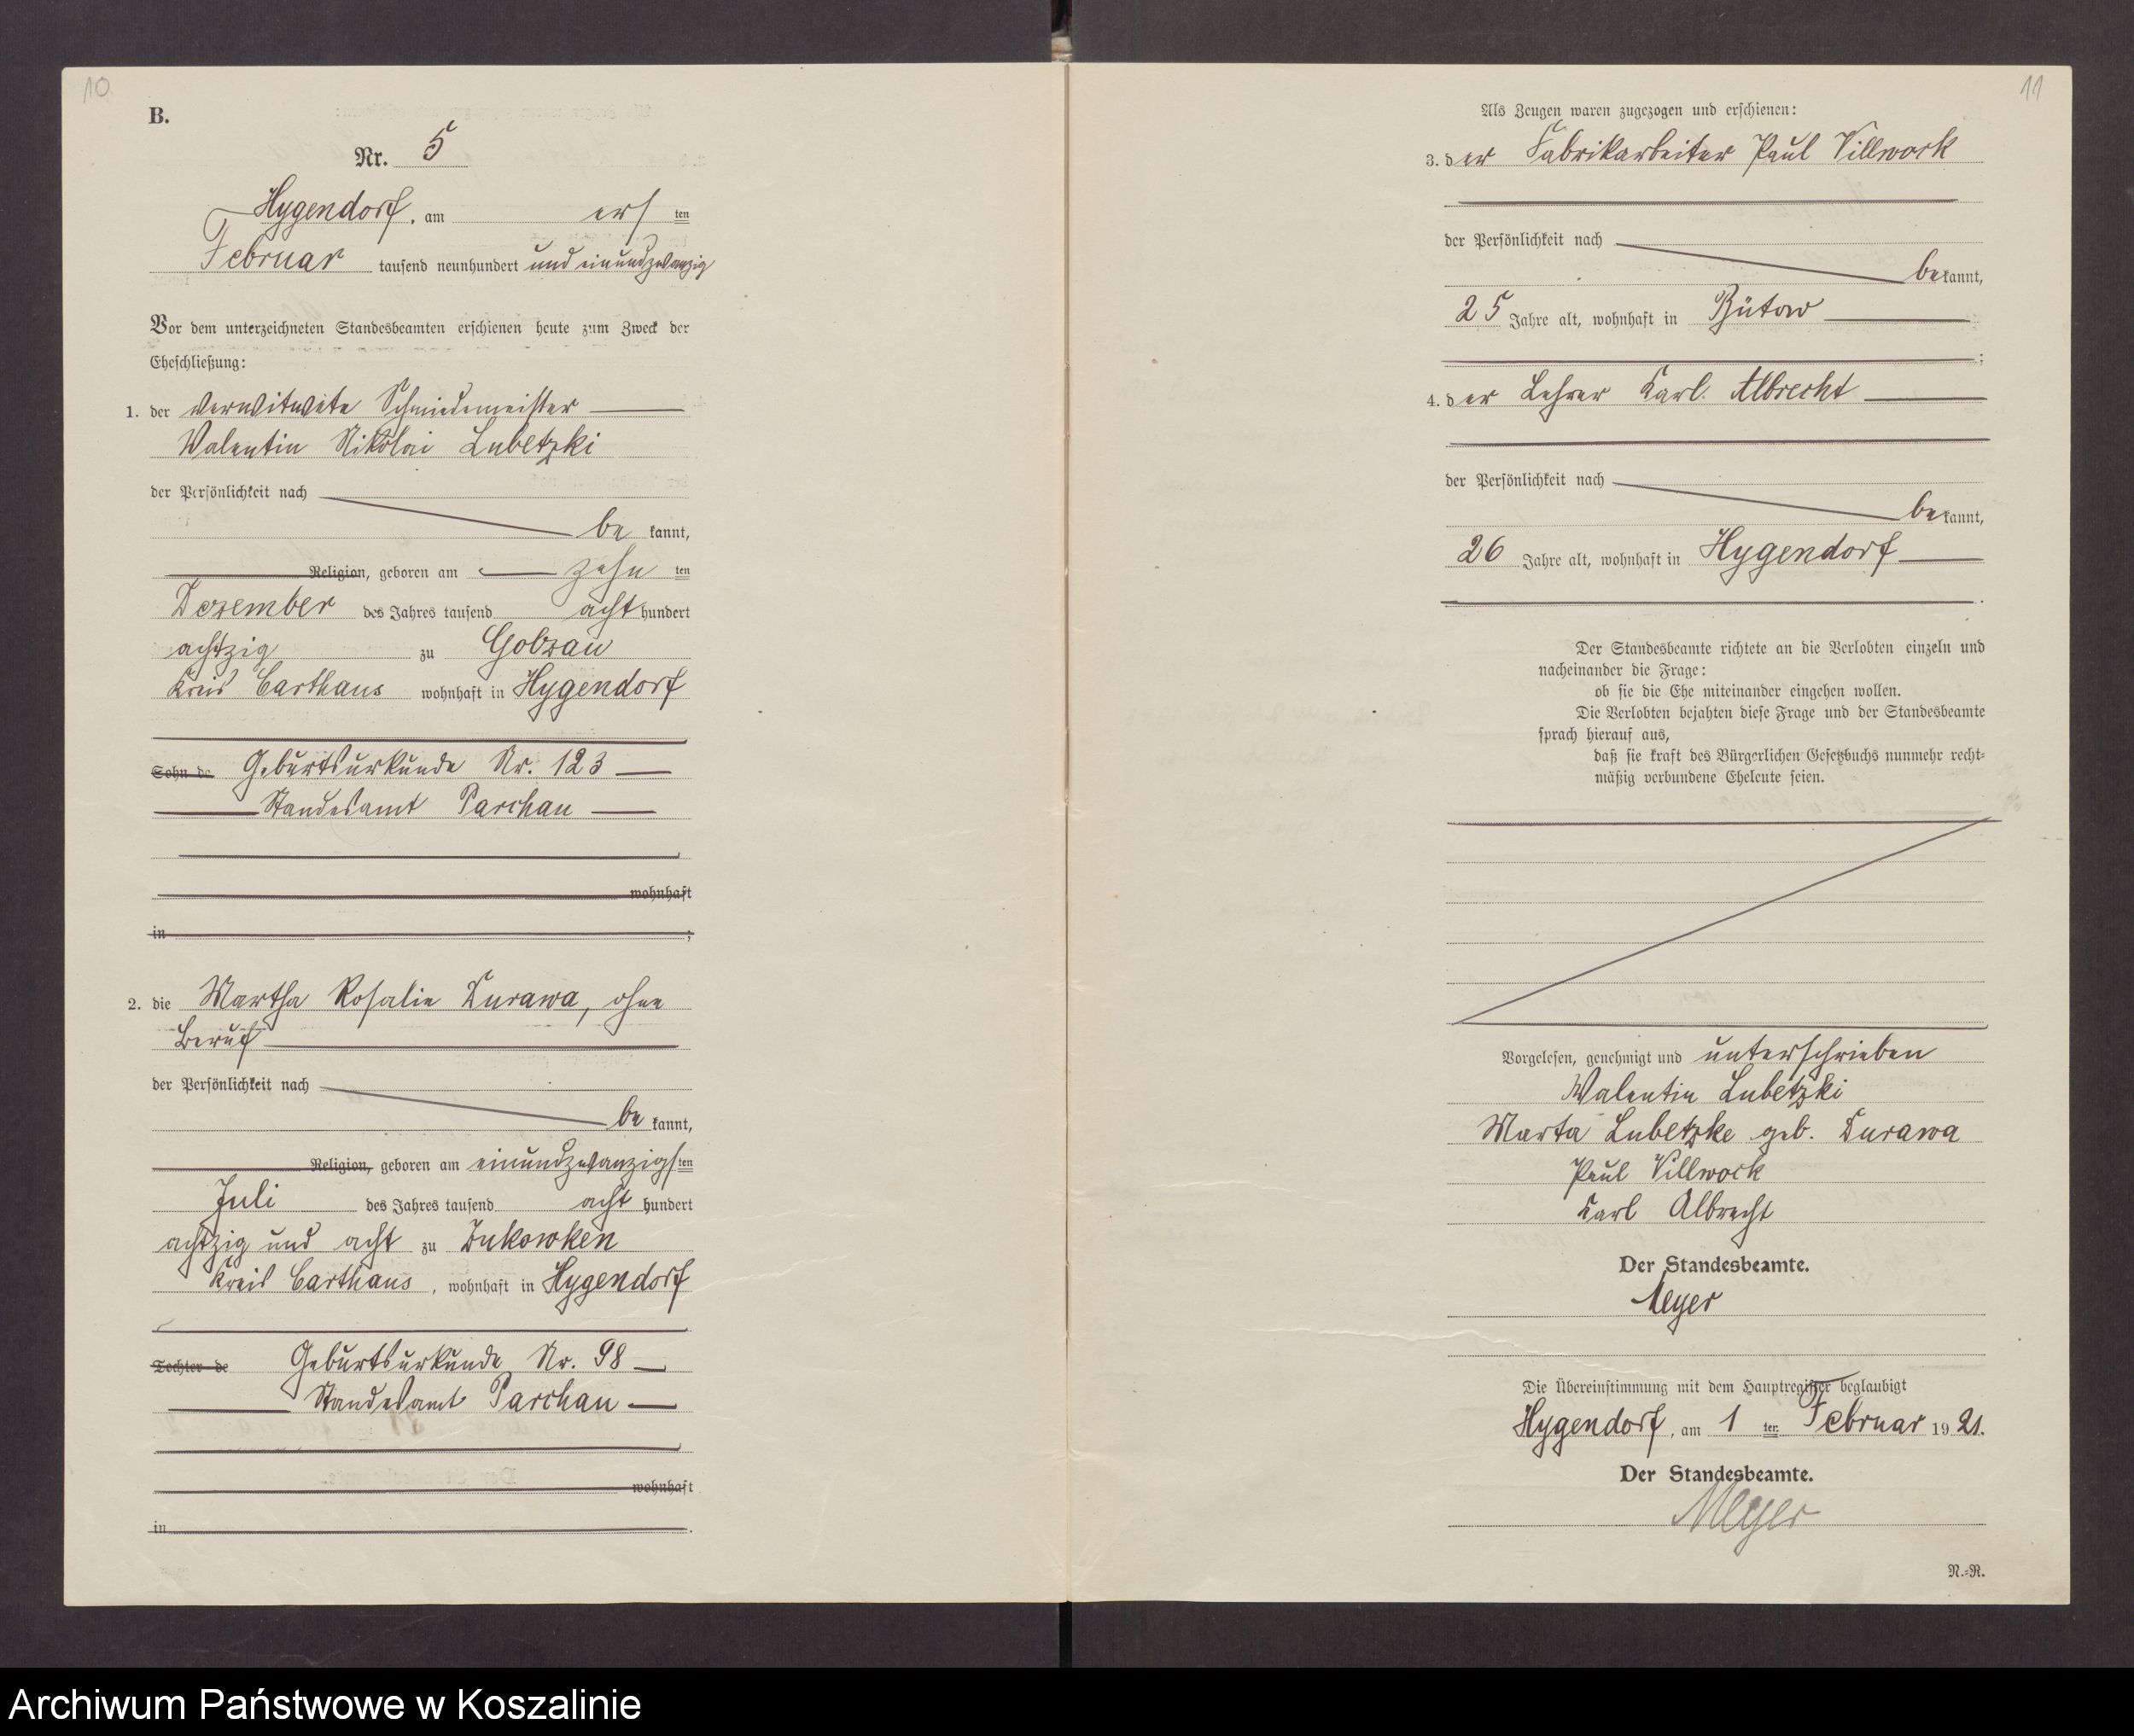 10
B.
Nr. 5
Hygendorf, am erſten
Februar tauſend neunhundert und einundzwanzig
Vor dem unterzeichneten Standesbeamten erſchienen heute zum Zweck der
Eheſchließung:
1. der verwitwete Schmiedemeiſter
Walentin Nikolai Lubetzki
der Perſönlichkeit nach
be kannt,
Religion, geboren am zehn ten
Dezember des Jahres tauſend acht hundert
achtzig zu
Kreis Carthaus wohnhaft in Hygendorf
Sohn de Geburtsurkunde Nr. 123
Standesamt Parchau
wohnhaft
in ;
2. die Martha Roſalie Kurawa, ohne
Beruf
der Perſönlichkeit nach
be kannt,
Religion, geboren am einundzwanzigſten
Juli des Jahres tauſend acht hundert
achtzig und acht zu Zukowken
Kreis Carthaus, wohnhaft in Hygendorf
Tochter de Geburtsurkunde Nr. 98
Standesamt Parchau
wohnhaft
in .
11
Als Zeugen waren zugezogen und erſchienen:
3. der Fabrikarbeiter Paul Villwock
der Perſönlichkeit nach
bekannt,
25 Jahre alt, wohnhaft in Bütow
;
4. der Lehrer Karl Albrecht
der Perſönlichkeit nach
bekannt,
26 Jahre alt, wohnhaft in Hygendorf
.
Der Standesbeamte richtete an die Verlobten einzeln und
nacheinander die Frage:
ob ſie die Ehe miteinander eingehen wollen.
Die Verlobten bejahten dieſe Frage und der Standesbeamte
ſprach hierauf aus,
daß ſie kraft des Bürgerlichen Geſetzbuchs nunmehr recht-
mäßig verbundene Eheleute ſeien.
Vorgeleſen, genehmigt und unterſchrieben
Walentin Lubetzki
Marta Lubetzke geb. Kurawa
Paul Villwock
Karl Albrecht
Der Standesbeamte.
Meyer
Die Übereinſtimmung mit dem Hauptregiſter beglaubigt
Hygendorf, am 1 ten Februar 1921.
Der Standesbeamte.
Meyer
N.-R.
Archiwum Państwowe w Koszalinie